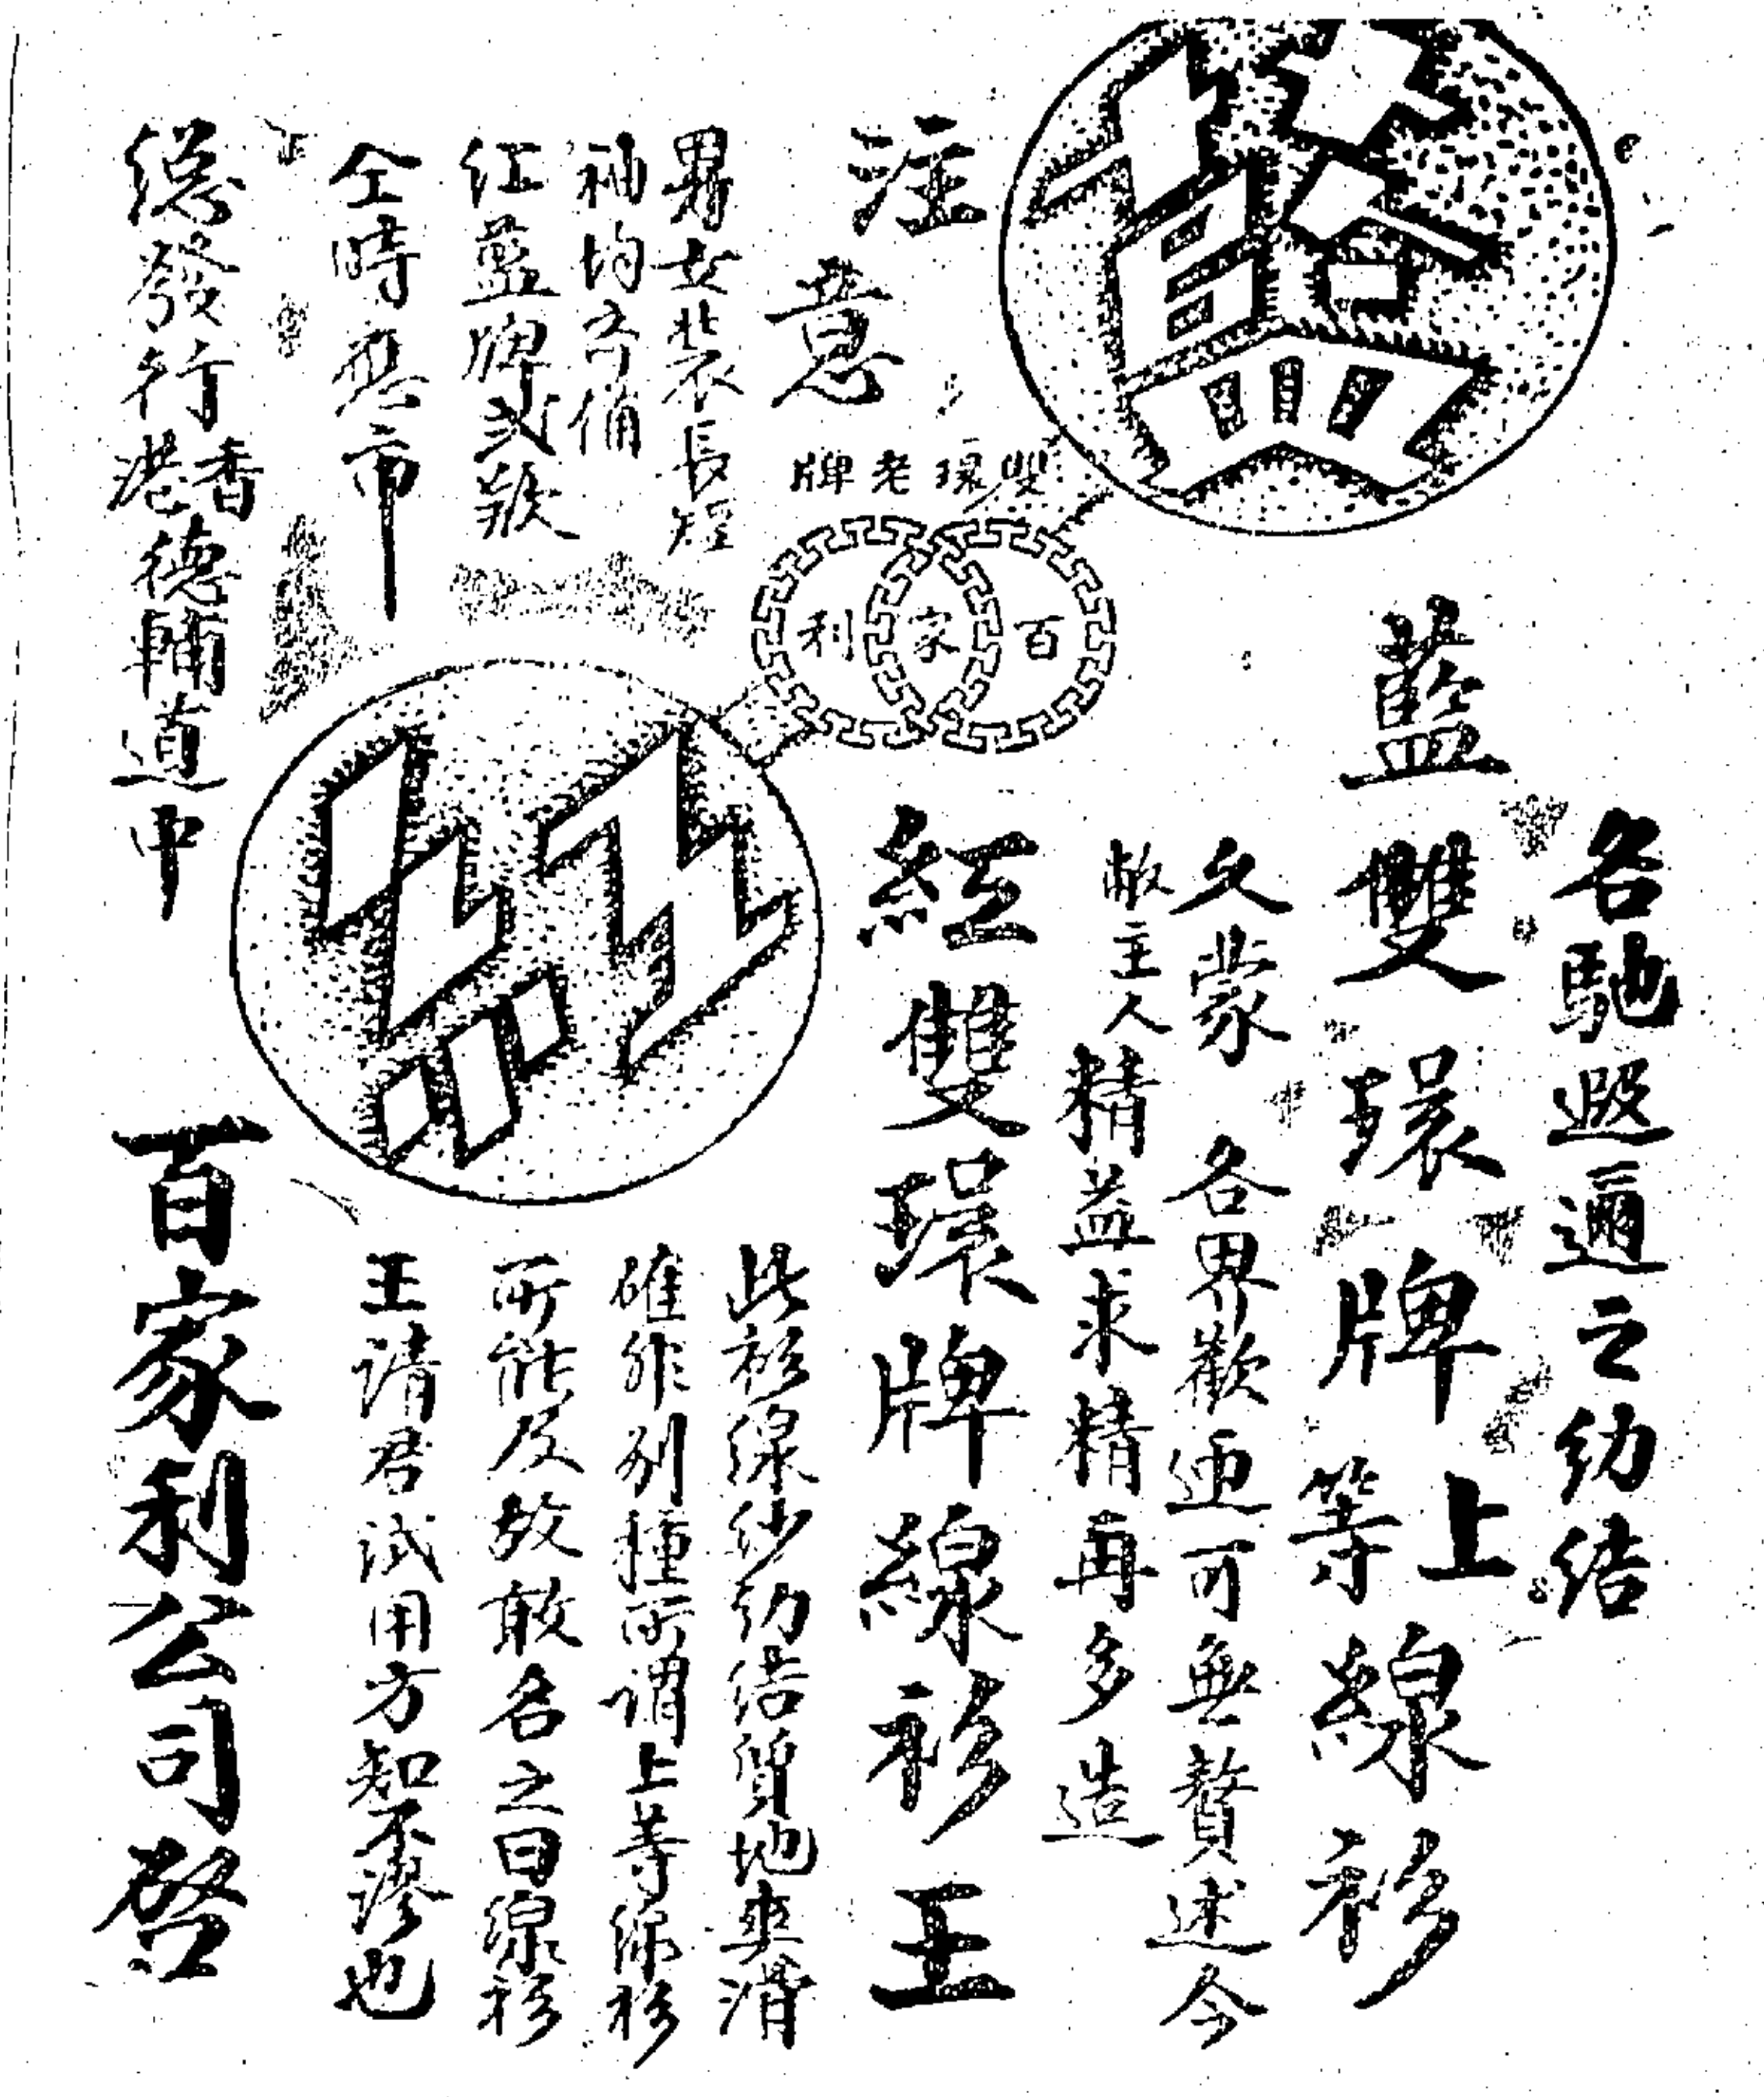 名馳遐邇之幼結
藍雙環牌上等線衫
久蒙 各界歡迎可無贅述今
敝主人精益求精再多造
紅雙環牌線衫王
此衫線紗幼結質地爽滑
確非別種所謂上等線衫
所能及故敢名之曰線衫
王請君試用方知不謬也
雙環老牌
百家利
注意
男女裝長短
袖均齊備
紅藍牌式號
仝時應市
總發行香港德輔道中
百家利公司啓